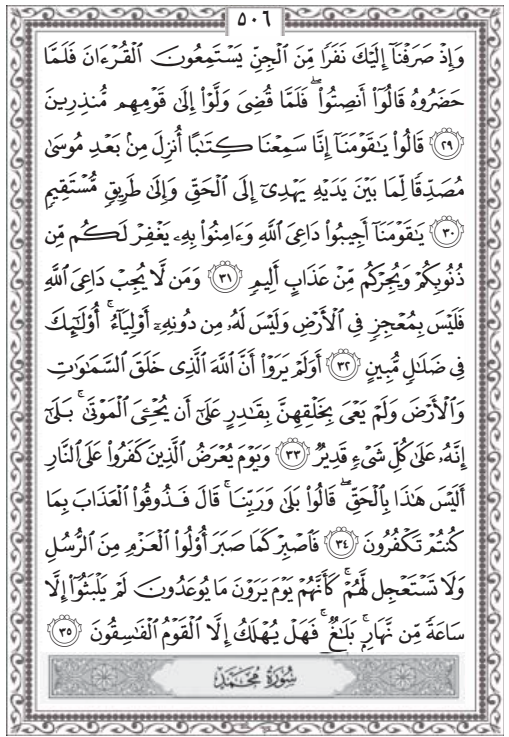 ٥٠٦
وَإِذْ صَرَفْنَآ إِلَيْكَ نَفَرًا مِّنَ ٱلْجِنِّ يَسْتَمِعُونَ ٱلْقُرْءَانَ فَلَمَّا
حَضَرُوهُ قَالُوٓا۟ أَنصِتُوا۟ ۖ فَلَمَّا قُضِىَ وَلَّوْا۟ إِلَىٰ قَوْمِهِم مُّنذِرِينَ
٢٩ قَالُوا۟ يَٰقَوْمَنَآ إِنَّا سَمِعْنَا كِتَٰبًا أُنزِلَ مِنۢ بَعْدِ مُوسَىٰ
مُصَدِّقًا لِّمَا بَيْنَ يَدَيْهِ يَهْدِىٓ إِلَى ٱلْحَقِّ وَإِلَىٰ طَرِيقٍ مُّسْتَقِيمٍ
٣٠ يَٰقَوْمَنَآ أَجِيبُوا۟ دَاعِىَ ٱللَّهِ وَءَامِنُوا۟ بِهِۦ يَغْفِرْ لَكُم مِّن
ذُنُوبِكُمْ وَيُجِرْكُم مِّنْ عَذَابٍ أَلِيمٍ ٣١ وَمَن لَّا يُجِبْ دَاعِىَ ٱللَّهِ
فَلَيْسَ بِمُعْجِزٍ فِى ٱلْأَرْضِ وَلَيْسَ لَهُۥ مِن دُونِهِۦٓ أَوْلِيَآءُ ۚ أُو۟لَٰٓئِكَ
فِى ضَلَٰلٍ مُّبِينٍ ٣٢ أَوَلَمْ يَرَوْا۟ أَنَّ ٱللَّهَ ٱلَّذِى خَلَقَ ٱلسَّمَٰوَٰتِ
وَٱلْأَرْضَ وَلَمْ يَعْىَ بِخَلْقِهِنَّ بِقَٰدِرٍ عَلَىٰٓ أَن يُحْـِۧىَ ٱلْمَوْتَىٰ ۚ بَلَىٰٓ
إِنَّهُۥ عَلَىٰ كُلِّ شَىْءٍ قَدِيرٌ ٣٣ وَيَوْمَ يُعْرَضُ ٱلَّذِينَ كَفَرُوا۟ عَلَى ٱلنَّارِ
أَلَيْسَ هَٰذَا بِٱلْحَقِّ ۖ قَالُوا۟ بَلَىٰ وَرَبِّنَا ۚ قَالَ فَذُوقُوا۟ ٱلْعَذَابَ بِمَا
كُنتُمْ تَكْفُرُونَ ٣٤ فَٱصْبِرْ كَمَا صَبَرَ أُو۟لُوا۟ ٱلْعَزْمِ مِنَ ٱلرُّسُلِ
وَلَا تَسْتَعْجِل لَّهُمْ ۚ كَأَنَّهُمْ يَوْمَ يَرَوْنَ مَا يُوعَدُونَ لَمْ يَلْبَثُوٓا۟ إِلَّا
سَاعَةً مِّن نَّهَارٍۭ ۚ بَلَٰغٌ ۚ فَهَلْ يُهْلَكُ إِلَّا ٱلْقَوْمُ ٱلْفَٰسِقُونَ ٣٥
سُورَةُ مُحَمَّدٍ